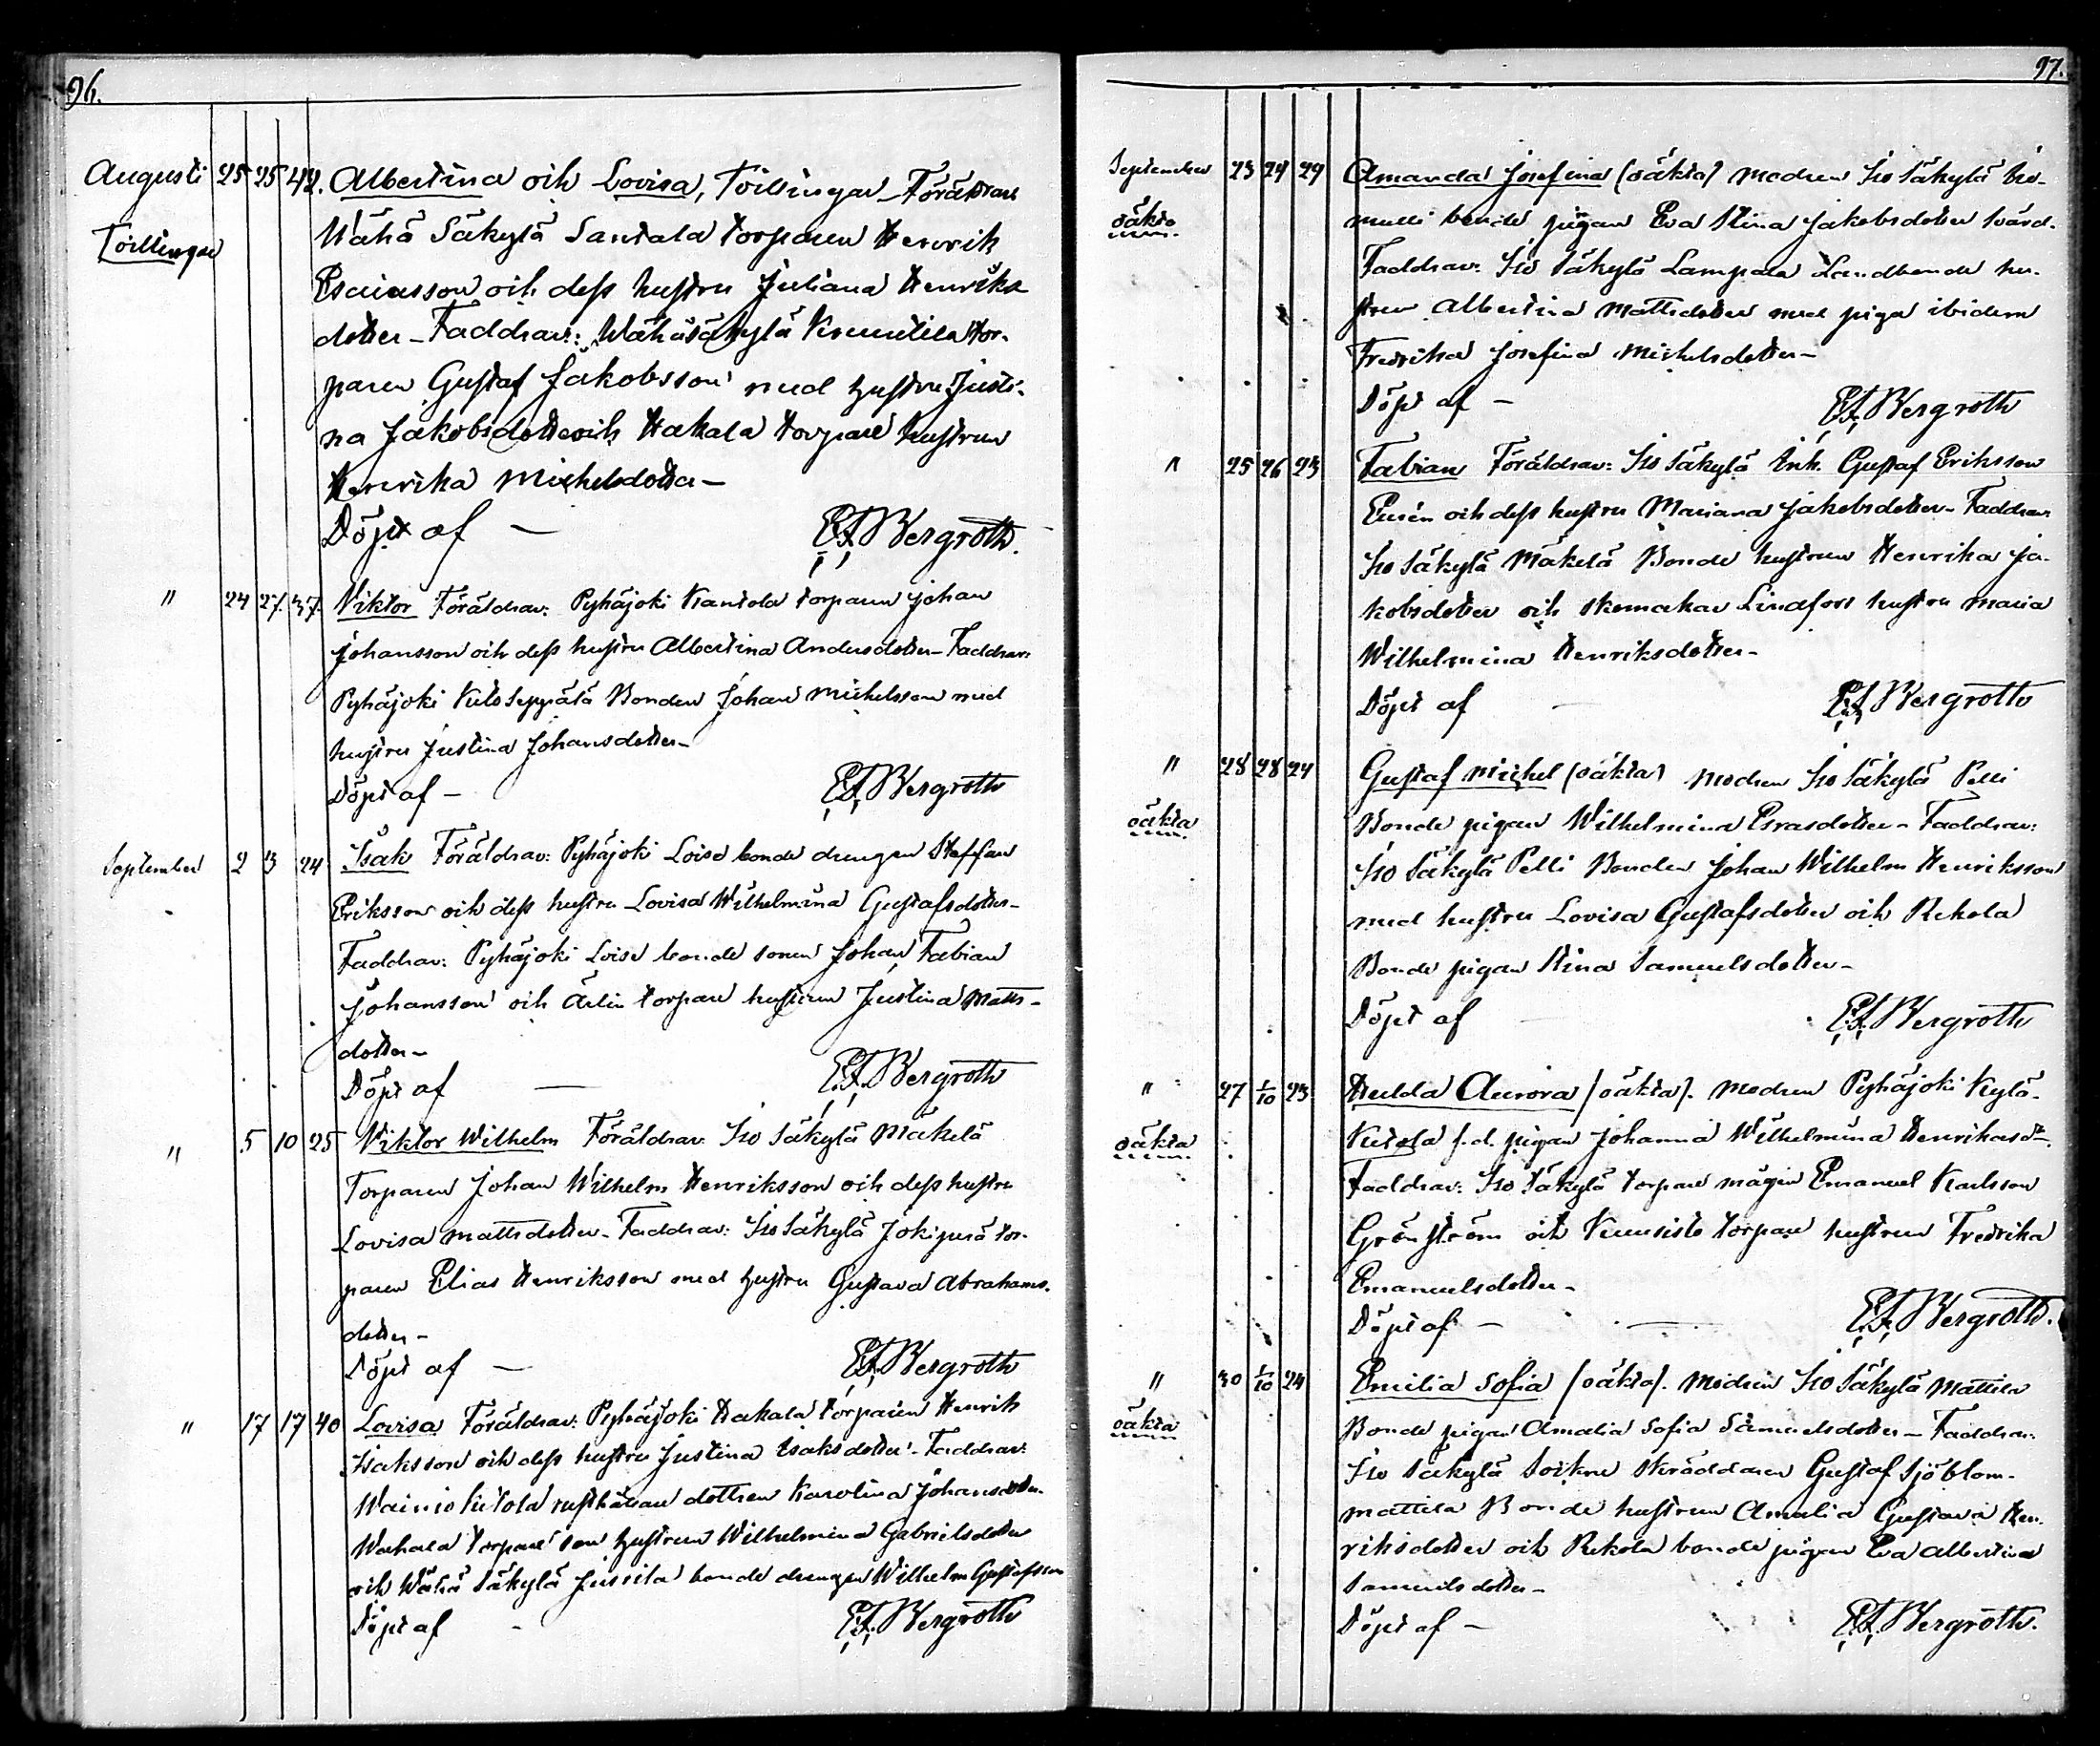 96.
Augusti 25 25 42. Albertina och Lovisa, Tvillingar _ Föräldrar
Tvillingar Wähä Säkylä Santala torparen Henrik
Esaiasson och dess hustru Juliana Henriks
dotter _ Faddrar: Wähäsäkylä tor-
paren Gustaf Jakobsson med hustru Justi-
na Jakobsdotter och Hakala torpare hustrun
Henrika Michelsdotter _
Döpt af — E.F. Bergroth.
" 24 27. 37. Viktor Föräldrar: Pyhäjoki Kantola torparen Johan
Johansson och dess hustru Albertina Andersdotter _ Faddrar:
Pyhäjoki Seppälä Bonden Johan Michelsson med
hustru Justina Johansdotter _
Döpt af — E.F. Bergroth
September 2 3 24 Isak Föräldrar: Pyhäjoki Loise bonde drengen Steffan
Eriksson och dess hustru Lovisa Wilhelmina Gustafsdotter _
Faddrar: Pyhäjoki Loise bonde sonen Johan Fabian
Johansson och torpare hustrun Justina Matts-
dotter _
Döpt af — E.F. Bergroth
" 5 10 25 Viktor Wilhelm Föräldrar: Iso Säkylä Mäkelä
Torparen Johan Wilhelm Henriksson och dess hustru
Lovisa Mattsdotter _ Faddrar: Iso Säkylä Jokiperä tor-
paren Elias Henriksson med hustru Gustava Abrahams-
dotter _
Döpt af — E.F. Bergroth
" 17 17 40 Lovisa Föräldrar: Pyhäjoki Hakala torparen Henrik
Isaksson och dess hustru Justina Isaksdotter _ Faddrar:
Wainio rusthållare dottren Karolina Johansdotter
torpare son hustrun Wilhelmina Gabrielsdotter
och Wähä Säkylä Jussila bonde drengen Wilhelm Gustafsson
Döpt af - E.F. Bergroth
97.
September 23 24 29 Amanda Josefina (oäkta) Modren Iso Säkylä
oäkta bonde pigan Eva Stina Jakobsdotter Svärd.
Faddrar: Iso Säkylä Lampala Landbonde hu-
strun Albertina Mattsdotter med piga ibidem
Fredrika Josefina Michelsdotter _
Döpt af — E.F. Bergroth
" 25 26 23 Fabian Föräldrar: Iso Säkylä Inh. Gustaf Eriksson
och dess hustru Mariana Jakobsdotter _ Faddrar:
Iso Säkylä Mäkelä Bonde hustrun Henrika Ja-
kobsdotter och skomakar Lindfors hustru Maria
Wilhelmina Henriksdotter _
Döpt af — E.F. Bergroth
" 28 28 24 Gustaf Michel (oäkta) Modren Iso Säkylä Pelli
oäkta Bonde pigan Wilhelmina Esrasdotter _ Faddrar:
Iso Säkylä Pelli Bonden Johan Wilhelm Henriksson
med hustru Lovisa Gustafsdotter och Rekola
Bonde pigan Stina Samuelsdotter _
Döpt af — E.F. Bergroth
" 27 1/10 23 Hulda Aurora (oäkta). Modren Pyhäjoki Kylä-
oäkta f.d. pigan Johanna Wilhelmina
Faddrar: Iso Säkylä torpare mågen Emanuel Karlsson
Grönström och Kuusisto torpare hustrun Fredrika
Emanuelsdotter _
Döpt af — E.F. Bergroth.
" 30 1/10 24 Emilia Sofia (oäkta). Modren Iso Säkylä Mattila
oäkta Bonde pigan Amalia Sofia Samuelsdotter _ Faddrar:
Iso Säkylä skräddaren Gustaf Sjöblom-
Mattila Bonde hustrun Amalia Gustava Hen-
riksdotter och Rekola bonde pigan Eva Albertina
Samuelsdotter _
Döpt af — E.F. Bergroth.